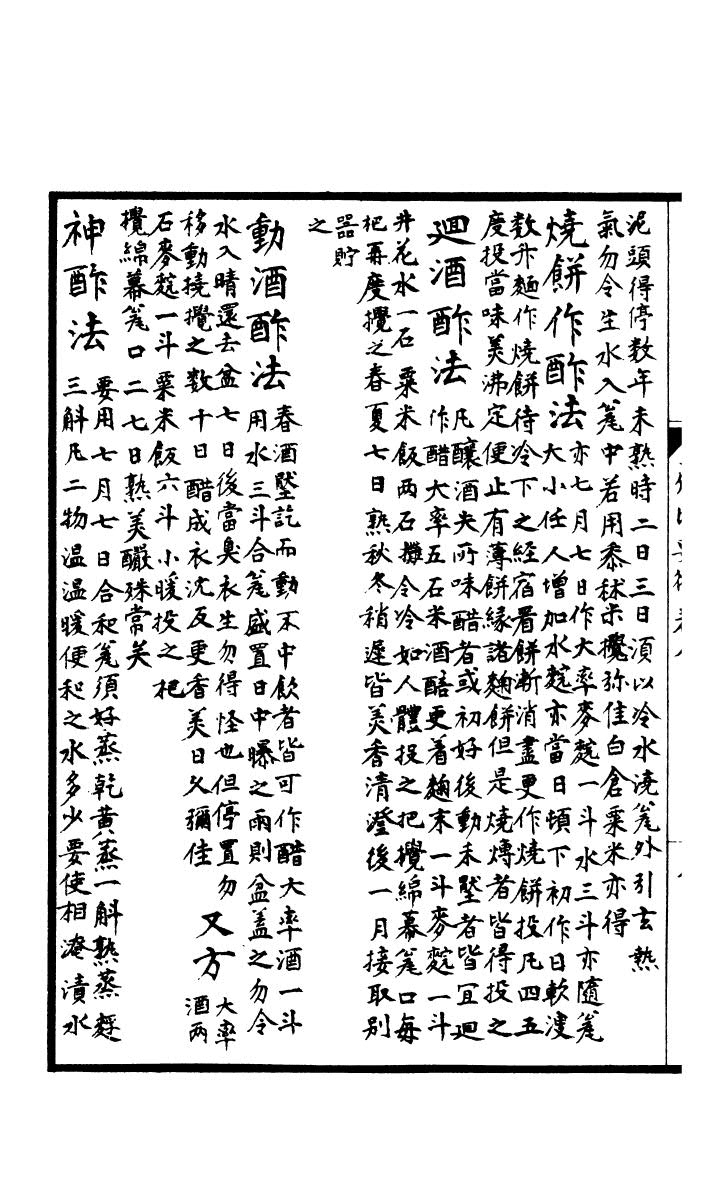 泥頭得停数年未熟時二日三日須以冷水澆瓮外引去熱
氣勿令生水入瓮中若用黍秫米攪弥佳白倉粟米亦得
燒餅作酢法
亦七月七日作大率麥䴷一斗水三斗亦隨瓮
大小任人增加水䴷亦當日頓下初作日軟溲
数升麵作燒餅待冷下之経宿看餅漸消盡更作燒餅投凡四五
度投當味美沸定便止有薄餅緣諸麵餅但是燒煿者皆得投之
廻酒酢法
凡釀酒失所味醋者或初好後動未壓者皆宜廻
作醋大率五石米酒醅更着麴末一斗麥䴷一斗
井花水一石粟米飯两石攤令冷如人體投之把攪綿幕瓮口每
杷再度攪之春夏七日熟秋冬稍遲皆美香清澄後一月接取别
器貯
之
動酒酢法
春酒壓訖而動不中飲者皆可作醋大率酒一斗
用水三斗合瓮盛置日中曝之雨則盆盖之勿令
水入晴還去盆七日後當臭衣生勿得怪也但停置勿
移動撓攪之数十日醋成衣沈反更香美日久彌佳
又方
大率
酒两
石麥䴷一斗粟米飯六斗小暖投之杷
攪綿幕瓮口二七日熟美釅殊常矣
神酢法
要用七月七日合和瓮須好蒸乾黃蒸一斛熟蒸麩
三斛凡二物温温暖便和之水多少要使相淹漬水